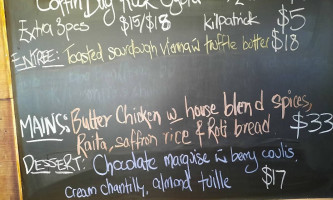 Coffin Bay Rock Oysters
Extra 3pcs $15/$18 kilpatrick $5
ENTREE: Toasted sourdough vienna w truffle butter $18
MAINS: Butter Chicken w house blend spices,
Raita, saffron rice & Roti bread $33
DESSERT: Chocolate marquise w berry coulis.
cream chantilly, almond tuille $17